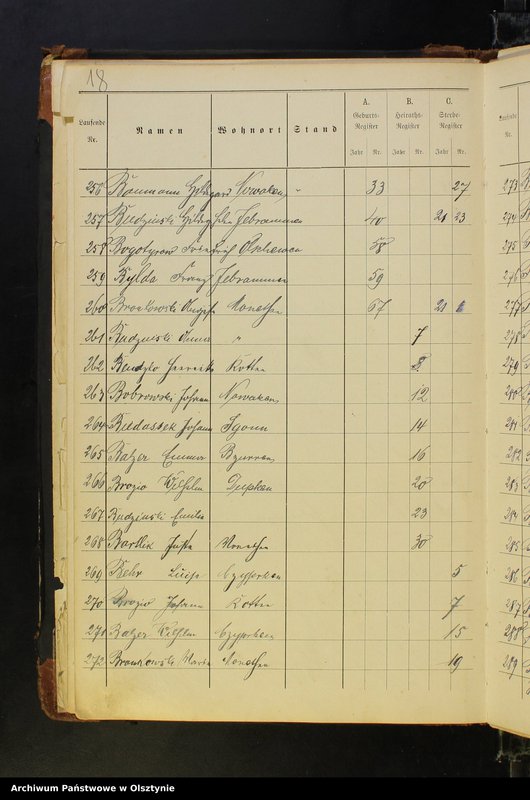 18
Laufende Nr. Namen Wohnort Stand A. Geburts-Register Jahr Nr. B. Heiraths-Register Jahr Nr. C. Sterbe-Register Jahr Nr.
256 Baumann Hildegard Nowaken " 33 27
257 Budzinski Jebrammen 40 21 23
258 Bogotyrow Friedrich 58
259 Bylda Franz Jebrammen 59
260 Bronkowski Auguste Monethen 67 21
261 Budzinski Anna " 7
262 Heinrich Kotten 8
263 Bobrowski Johann Nowaken 12
264 Johann Sgonn 14
265 Balzer Emma Bzurren 16
266 Brozio Wilhelm Dupken 20
267 Budzinski Emilie 23
268 Bartlik Monethen 30
269 Behr Luise Czyprken 5
270 Brozio Johann Kotten 7
271 Balzer Wilhelm Czyprken 15
272 Bronkowski Marie Monethen 19
Laufende Nr.
273
274
275
276
277
278
279
280
281
282
283
284
285
286
287
288
289
Archiwum Państwowe w Olsztynie